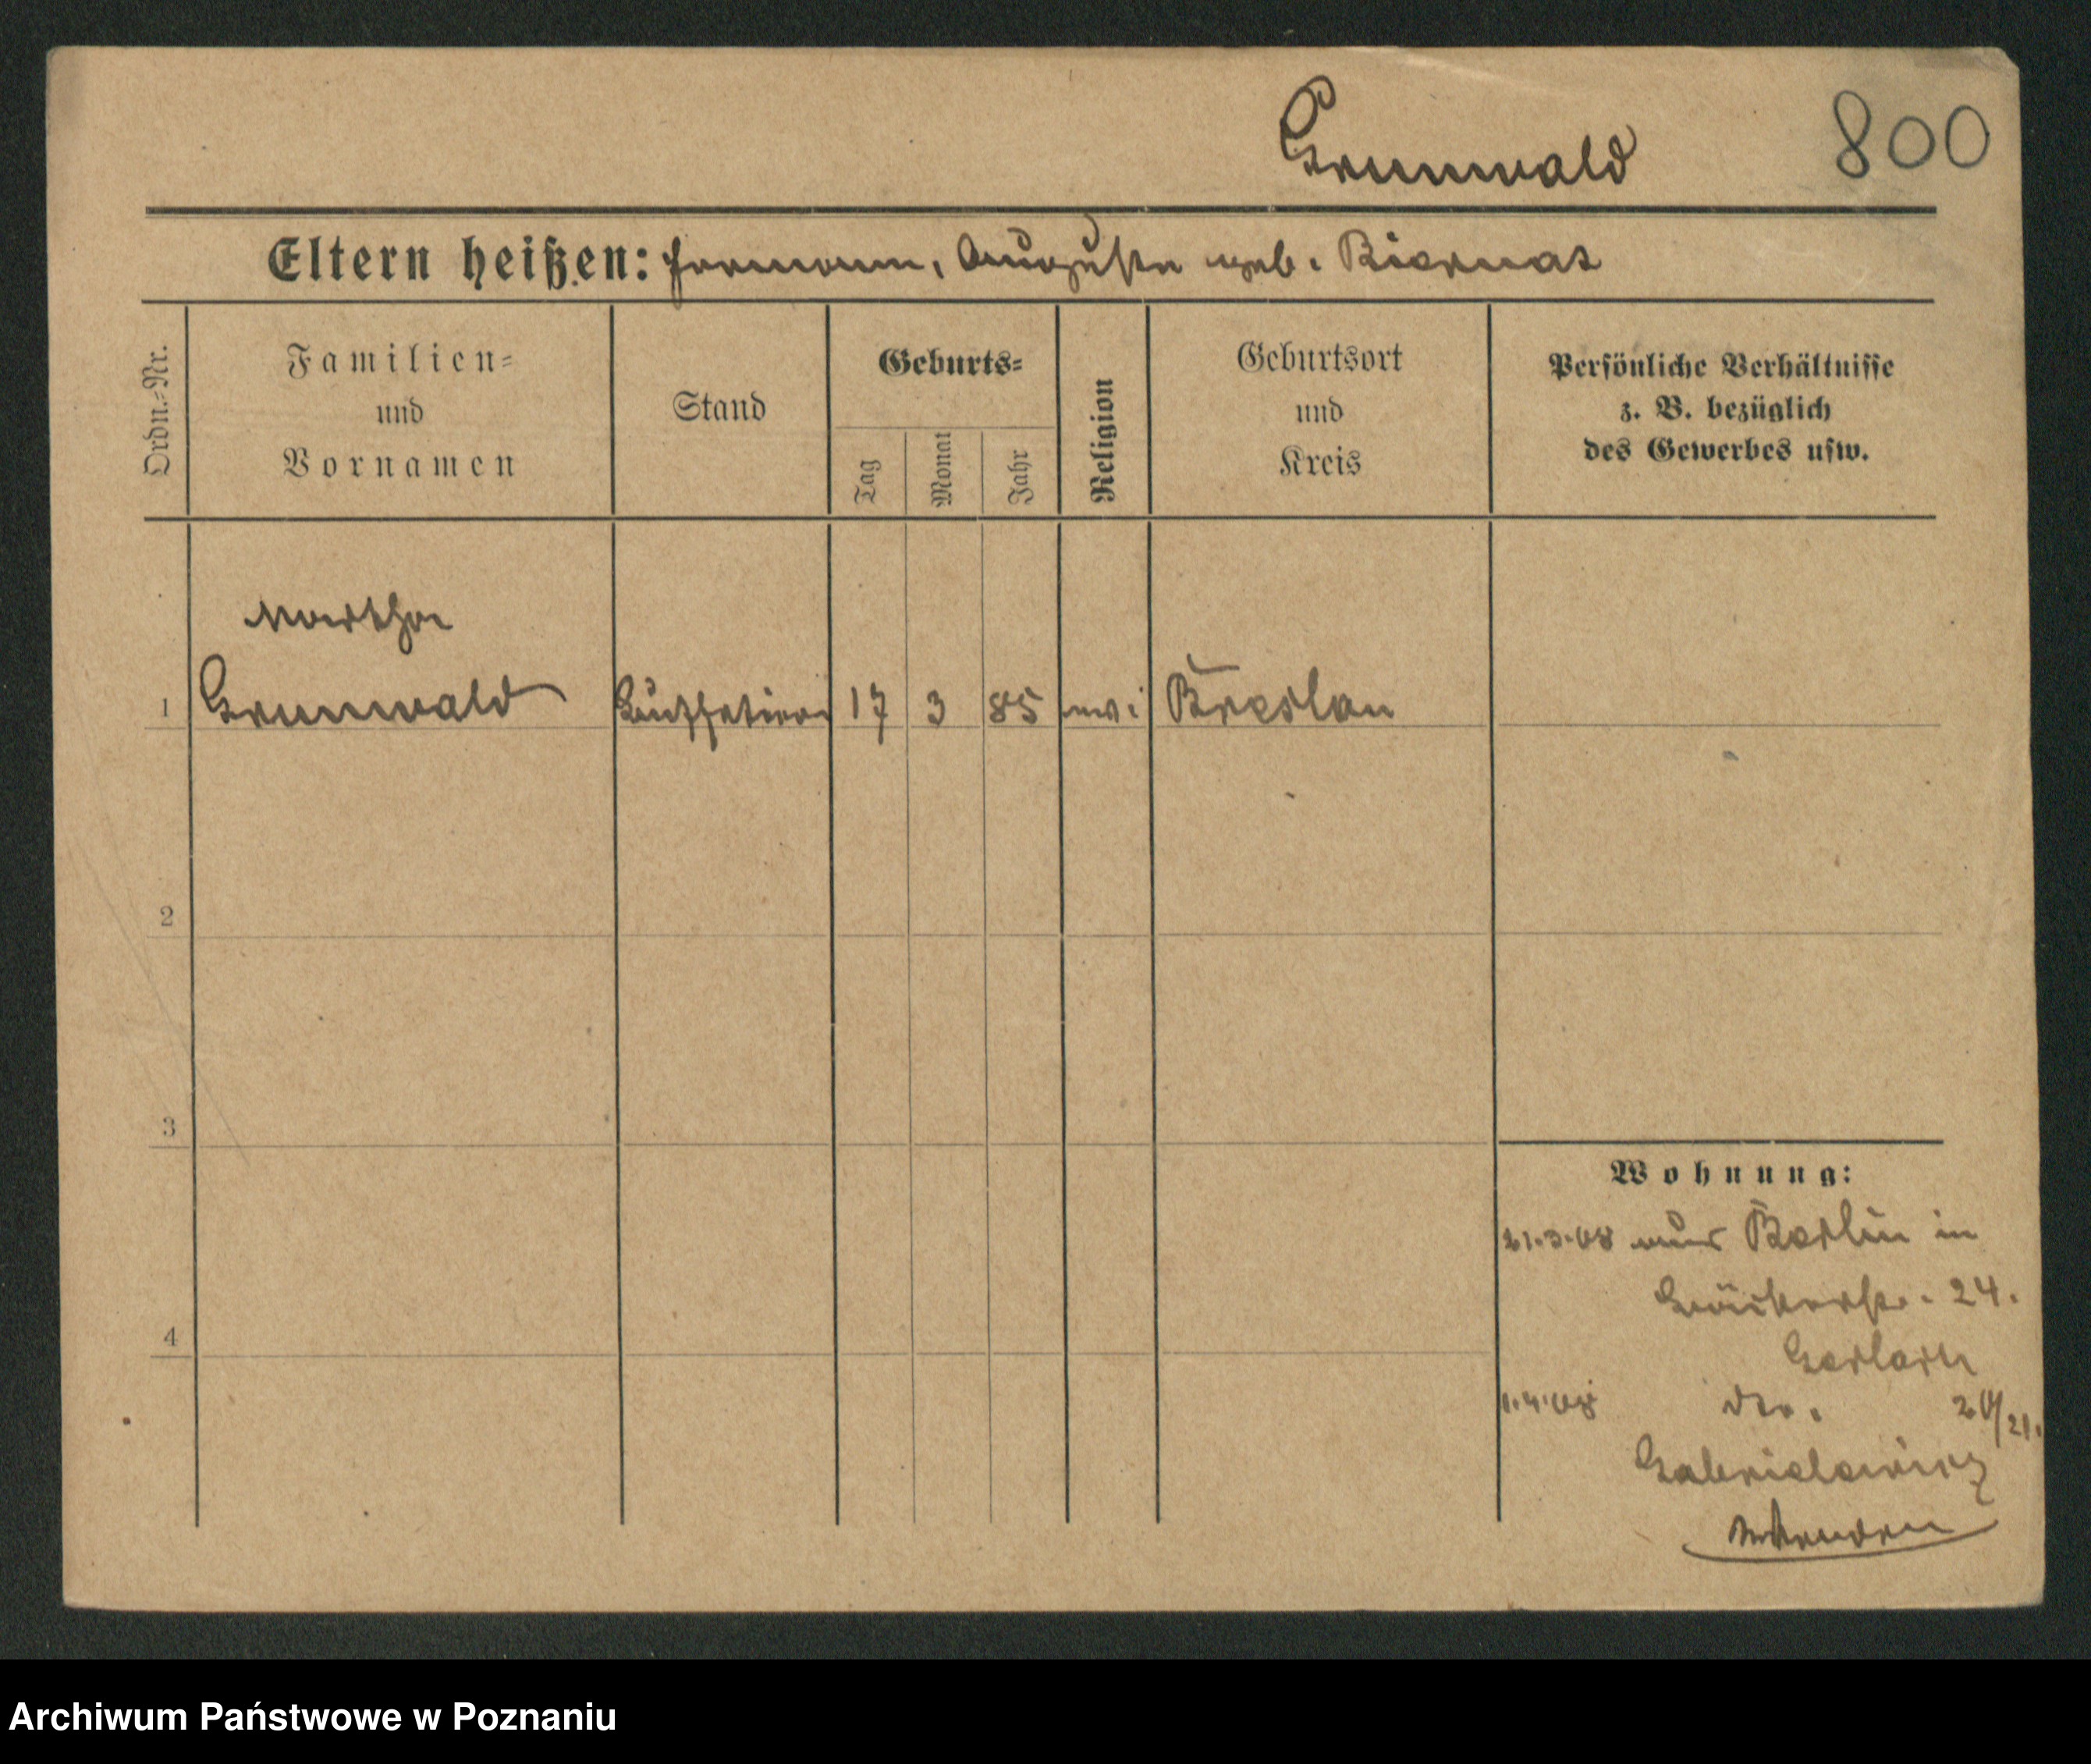 Grunwald 800
Eltern heißen: Hermann, Auguste geb. Biernat
Ordn.-Nr.
Familien-
und
Vornamen
Stand
Geburts-
Tag
Monat
Jahr
Religion
Geburtsort
und
Kreis
Persönliche Verhältnisse
z. B. bezüglich
des Gewerbes usw.
Martha
1 Grunwald 17 3 85 Breslau
2
3
4
Wohnung:
21.3.08 aus Berlin in
24.
Gerlach
1.4.08 dto. 20/21.
Gabrielewicz